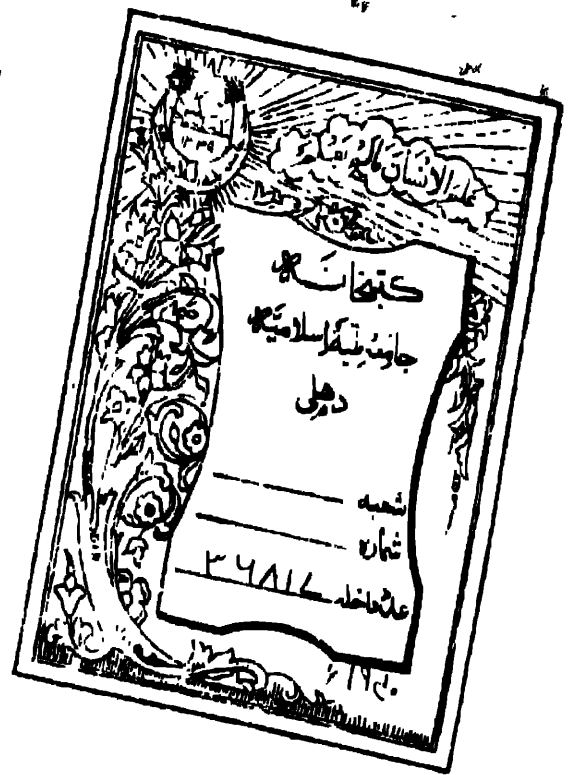 ۱۳۳۹
علم الانسان مالم یعلم
کتبخانہ
جامعہ ملیہ اسلامیہ
دہلی
شعبہ
شمارہ
داخلہ ۳۶۸۱۷